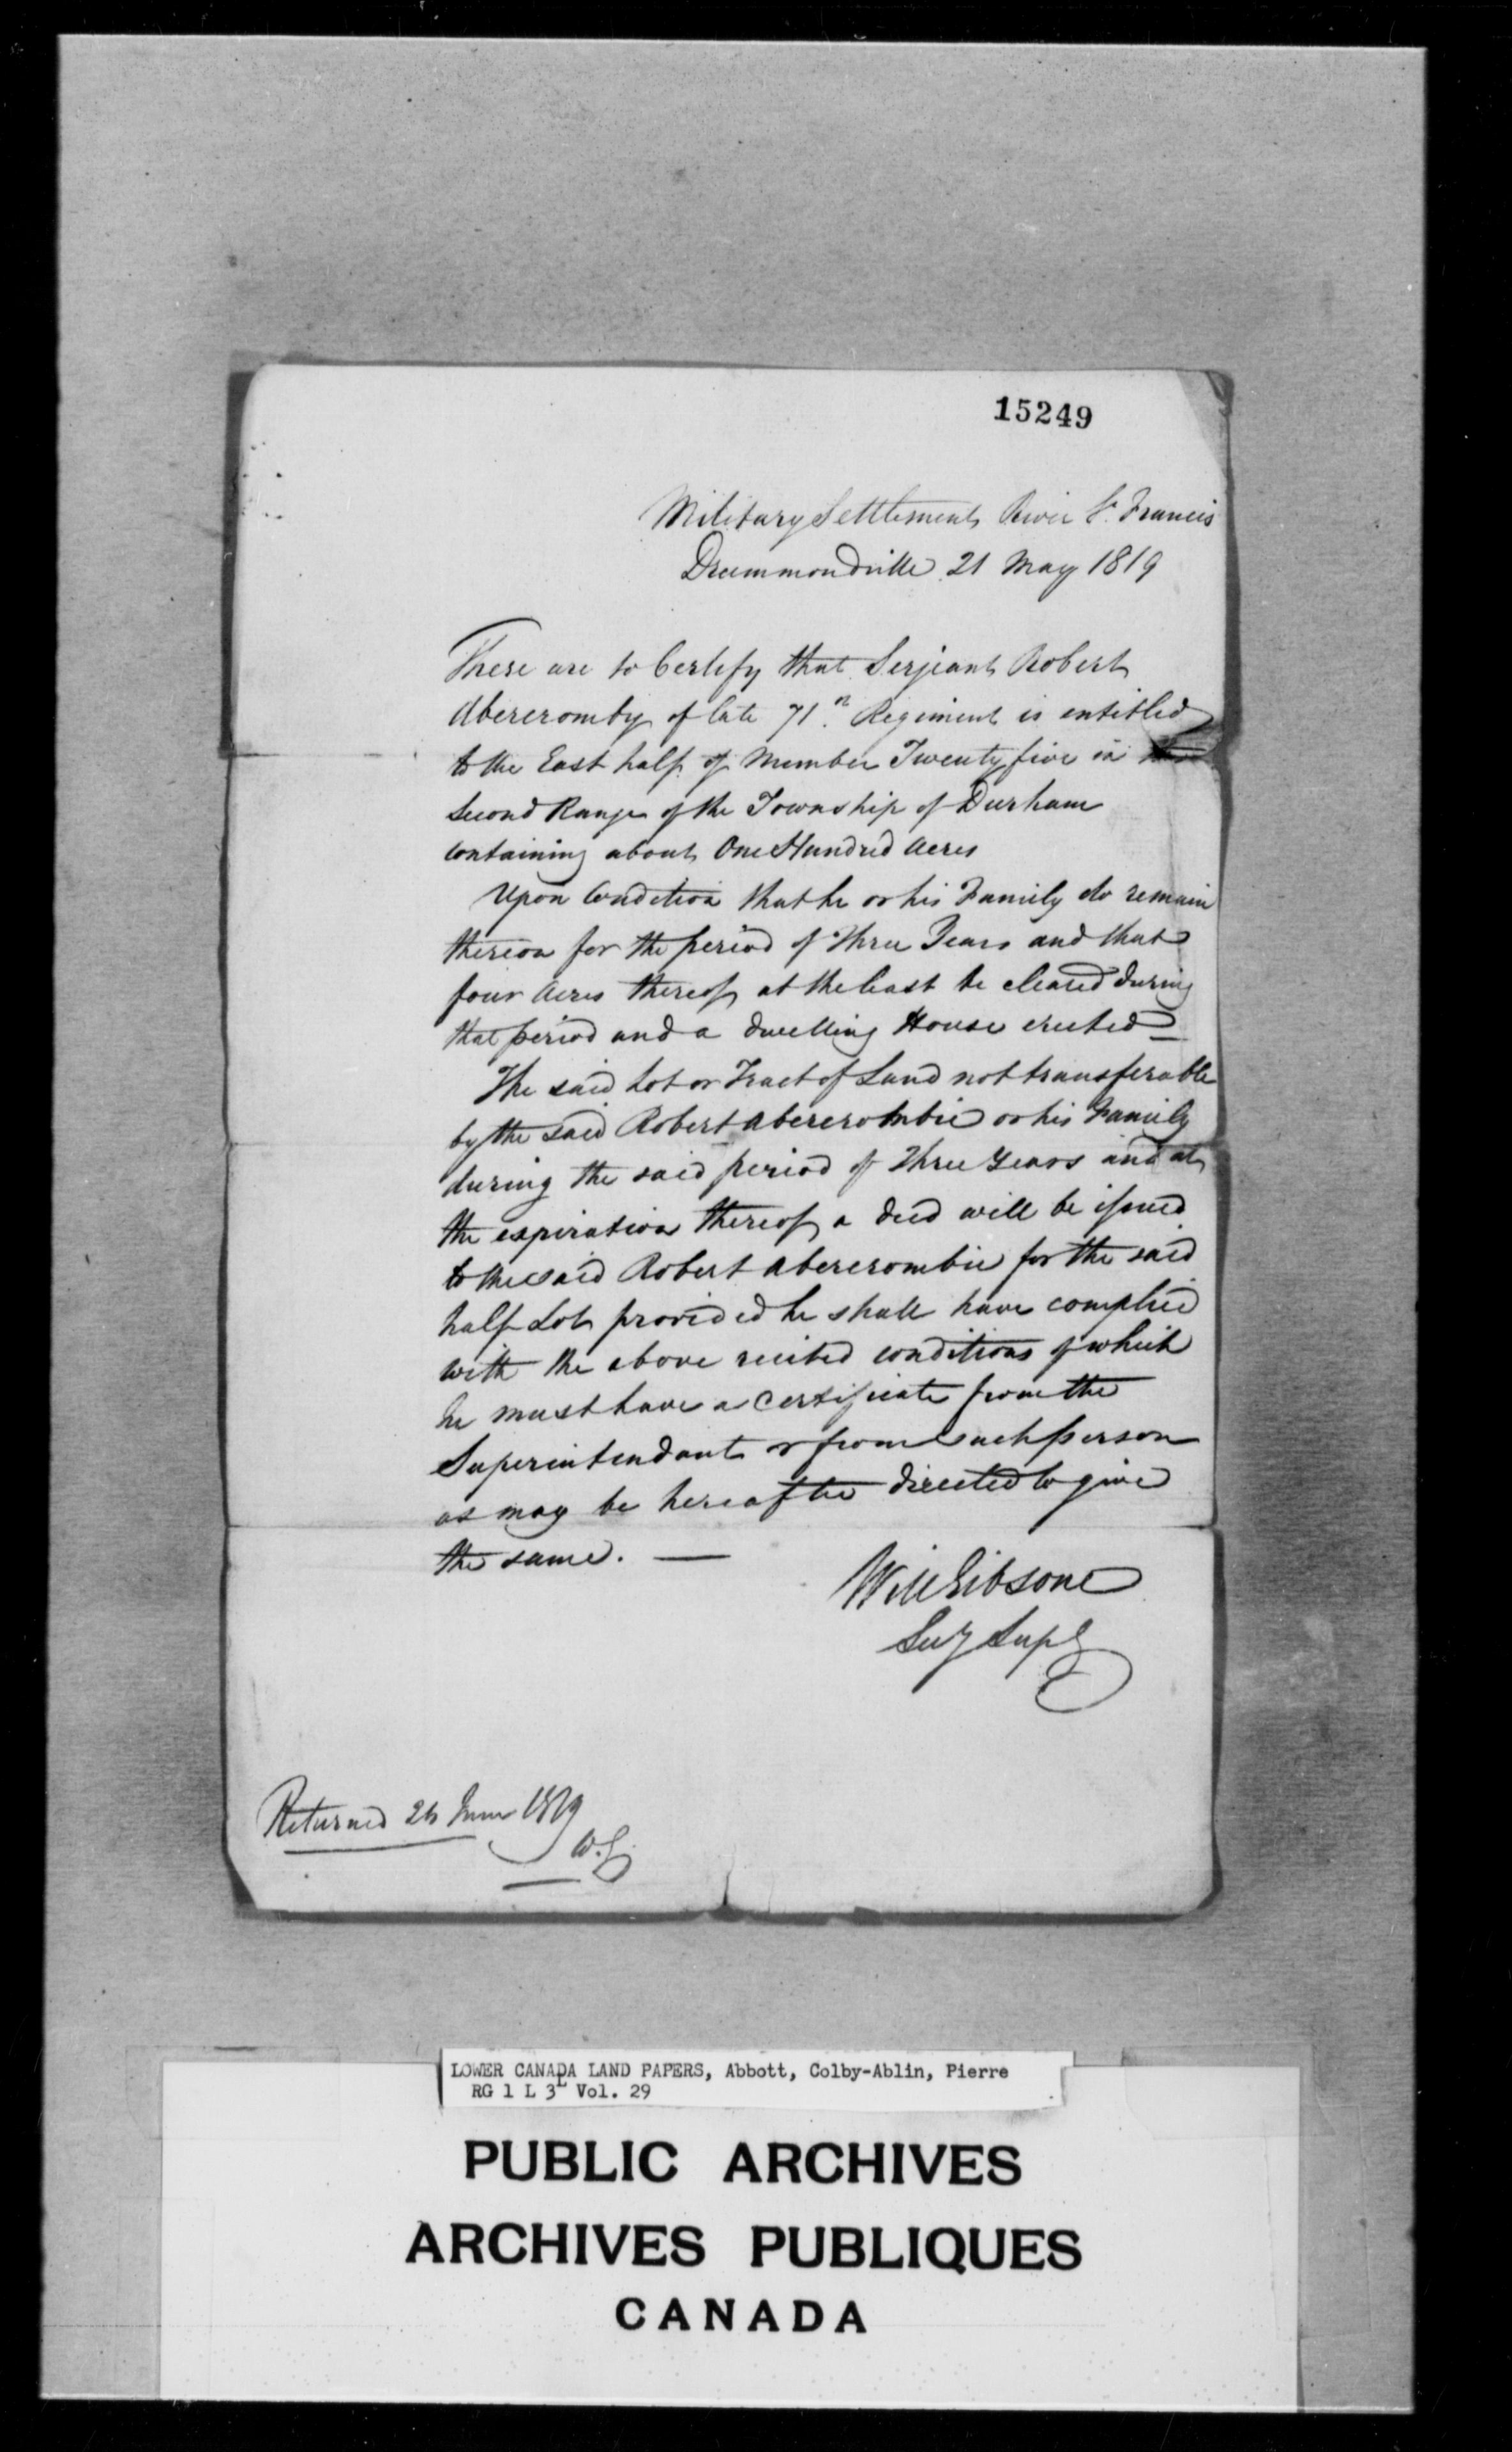 15249
Military Settlement River St. Francis
Drummondville 21 May 1819
These are to Certify that Serjeant Robert
Abercromby of late 71st Regiment is entitled
to the East half of Number Twenty five in the
Second Range of the Township of Durham
containing about One Hundred Acres
Upon Condition that he or his Family do remain
thereon for the period of Three Years and that
four Acres thereof at the least be cleared during
that period and a dwelling House erected
The said Lot or Tract of Land not transferable
by the said Robert Abercrombie or his Family
during the said period of Three Years and at
the expiration thereof a deed will be issued
to the said Robert Abercrombie for the said
half Lot provided he shall have complied
with the above recited conditions of which
he must have a Certificate from the
Superintendant or from such person
as may be hereafter directed to give
the same. —
Will Gibsone
Secy Supt
Returned June 1819
W.G.
LOWER CANADA LAND PAPERS, Abbott, Colby-Ablin, Pierre
RG 1 L 3L Vol. 29
PUBLIC ARCHIVES
ARCHIVES PUBLIQUES
CANADA